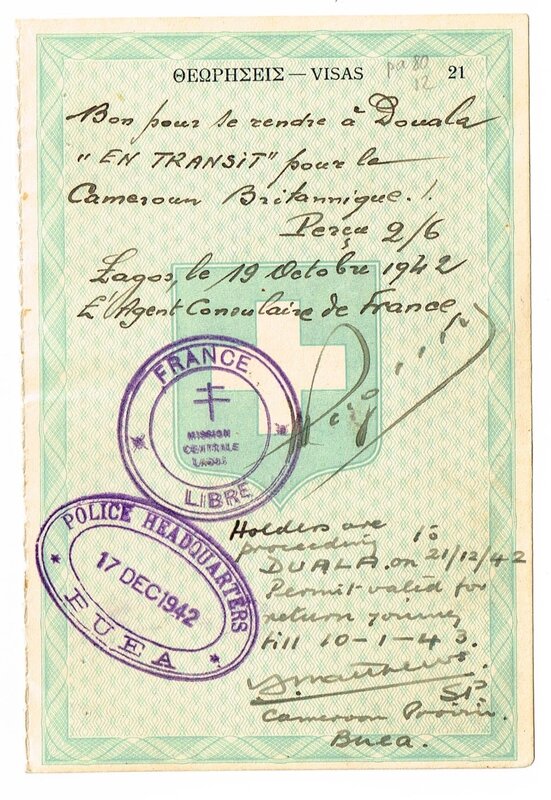 ΘΕΩΡΗΣΕΙΣ — VISAS 21
pa 80
12
Bon pour se rendre à Douala
"EN TRANSIT" pour le
Cameroun Britannique./.
Perçu 2/6
Lagos, le 19 Octobre 1942
L'Agent Consulaire de France,
FRANCE
MISSION
CENTRALE
LAGOS
LIBRE
POLICE HEADQUARTERS
17 DEC 1942
BUEA
Holders are
proceeding to
DUALA. on 21/12/42
Permit valid for
return journey
till 10-1-43.
S.P.
Cameroon
Buea.